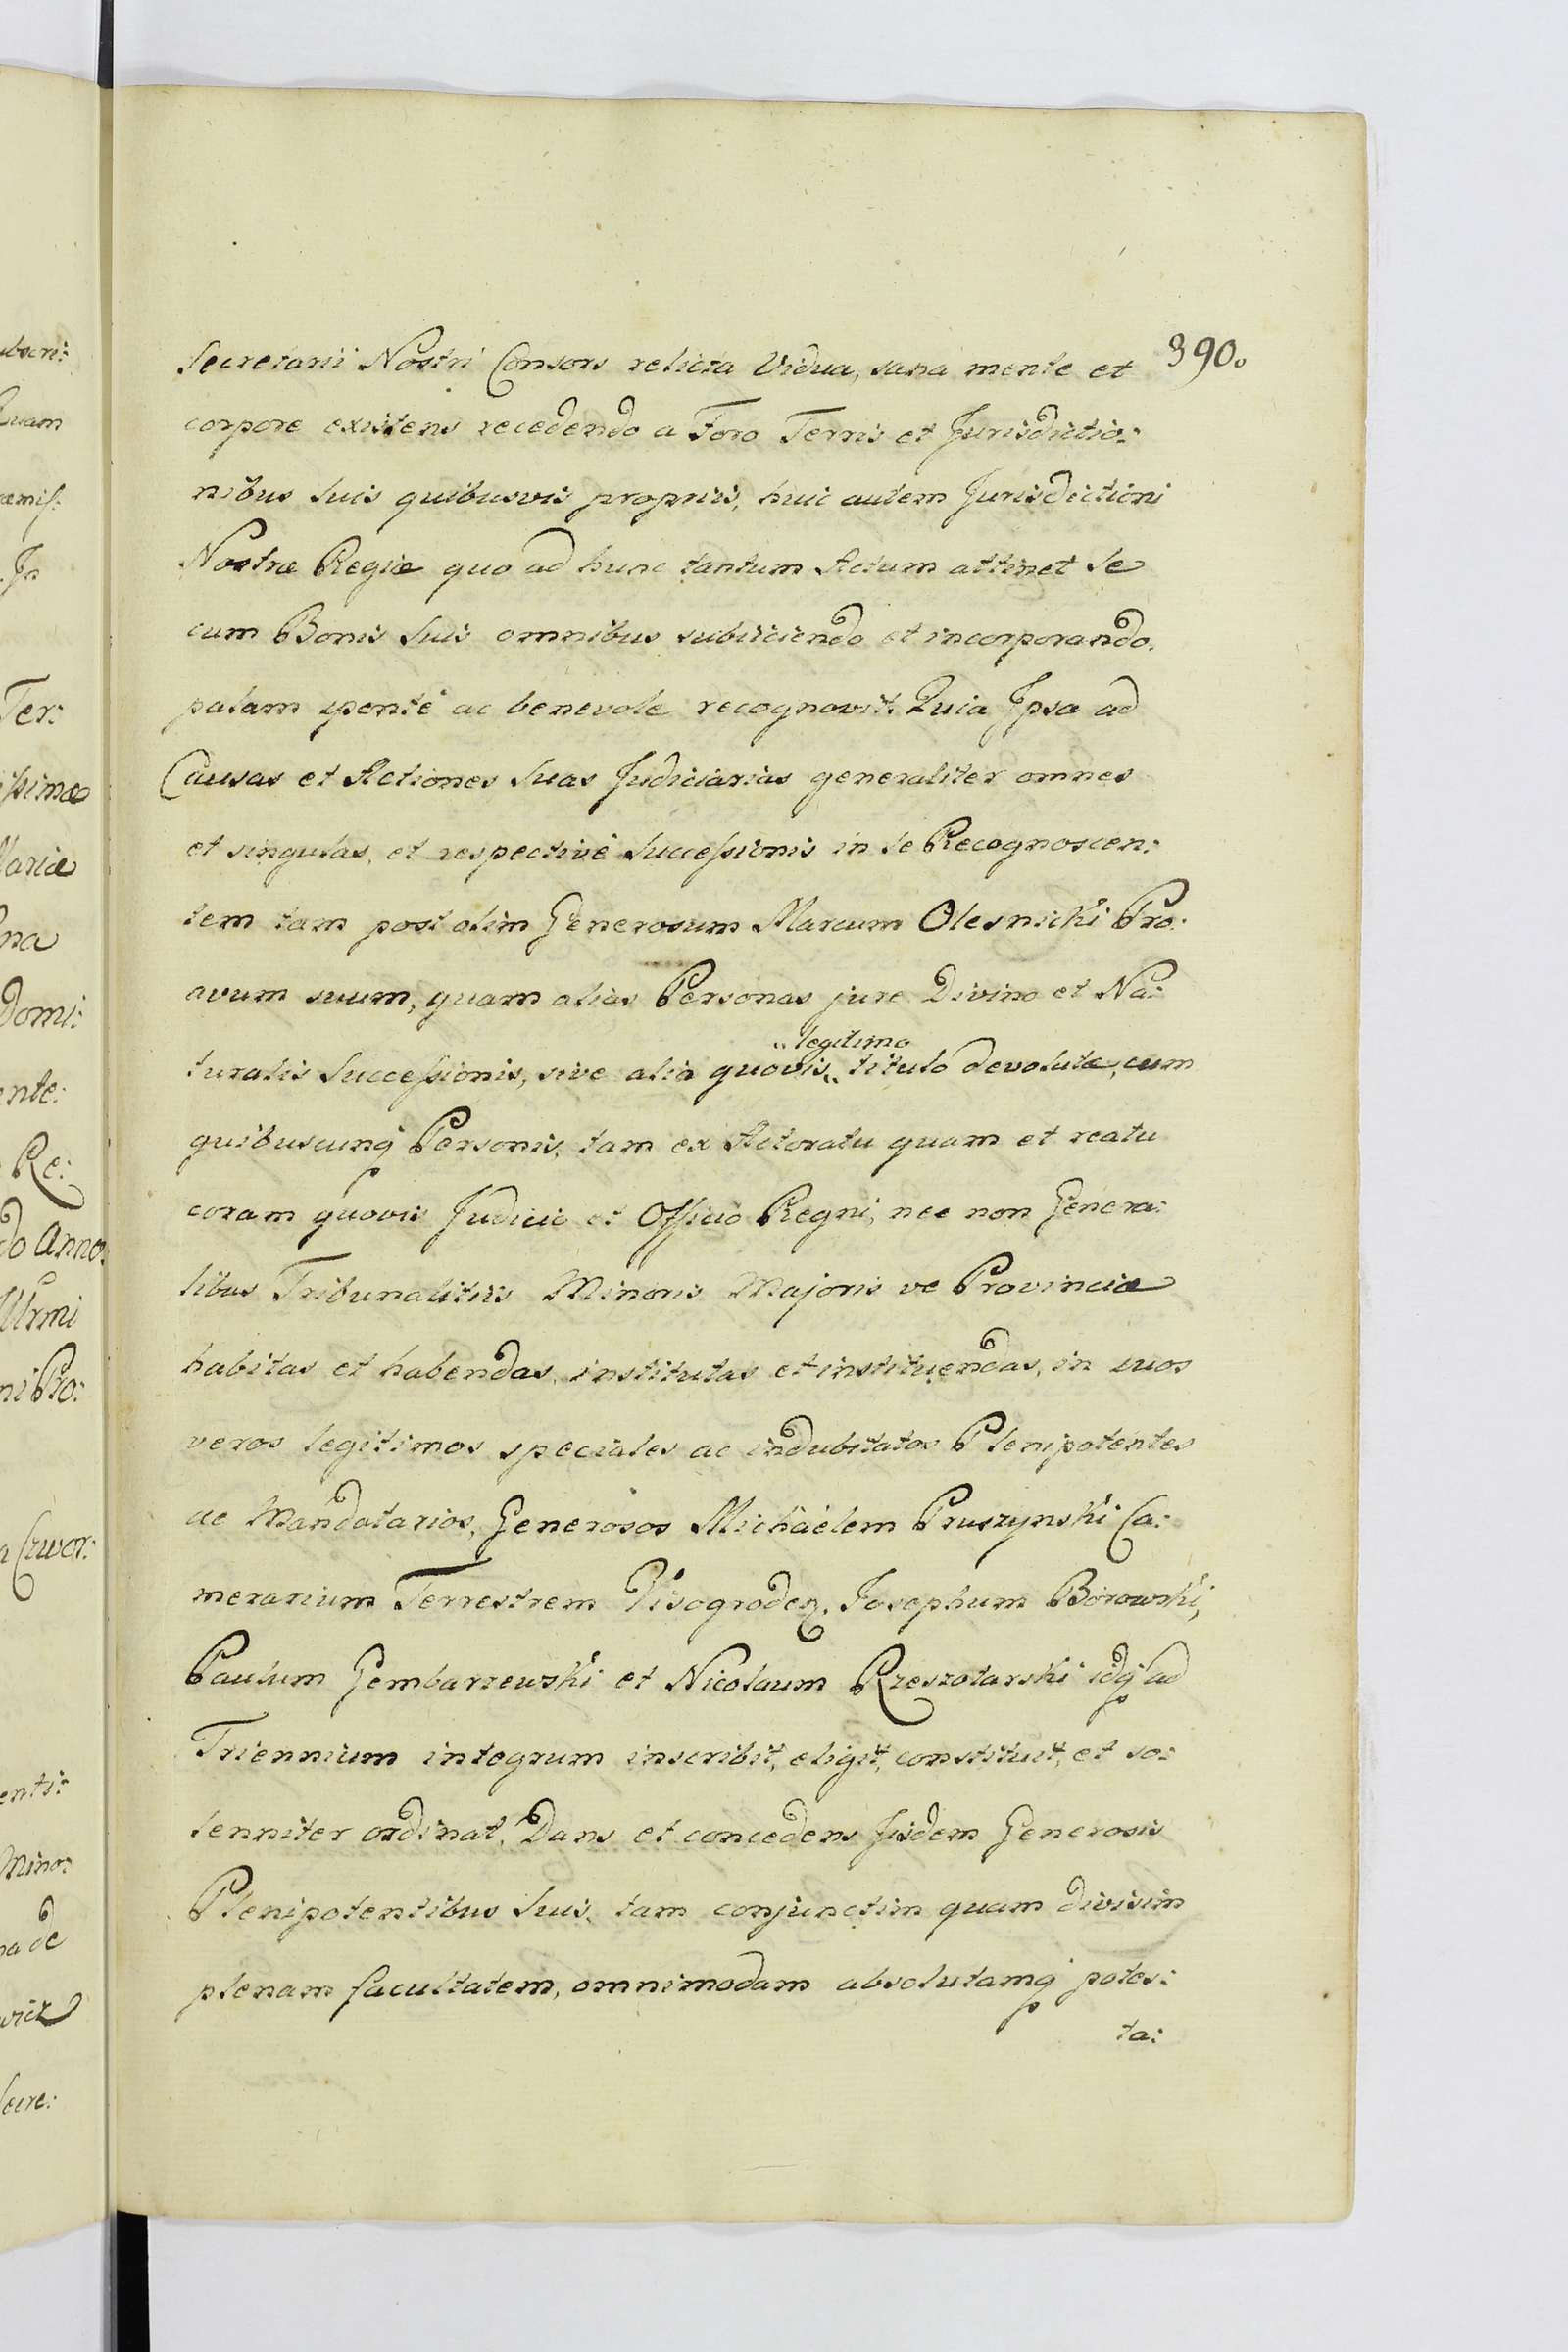 390.
Secretarii Nostri Consors relicta Vidua, sana mente et
corpore existens recedendo a Foro Terris et Jurisdictio:
nibus suis quibusvis propriis, huic autem Jurisdictioni
Nostræ Regiæ quo ad hunc tantum Actum attinet se
cum Bonis suis omnibus subiiciendo et incorporando.
palam sponte ac benevole recognovit. Quia Ipsa ad
Causas et Actiones suas Judiciarias generaliter omnes
et singulas, et respectivè Successionis in se Recognoscen:
tem tam post olim Generosum Marcum Olesnicki Pro:
avum suum, quam alias Personas jure Divino et Na:
legitimo
turalis Successionis, sive alio quovis titulo devolutæ, cum
quibuscunq Personis, tam ex Actoratu quam et reatu
coram quovis Judicio et Officio Regni, nec non Genera:
libus Tribunalitiis Minoris Majoris ve Provinciæ
habitas et habendas, institutas et instituendas, in suos
veros legitimos speciales ac indubitatos Plenipotentes
ac Mandatarios, Generosos Michaëlem Pruszynski Ca:
merarium Terrestrem Visogroden. Josephum Borowski,
Paulum Gembarzewski et Nicolaum Rzeszotarski idq ad
Triennium integrum inscribit, eligit, constituit, et so:
lenniter ordinat. Dans et concedens Jisdem Generosis
Plenipotentibus suis, tam conjunctim quam divisim
plenam facultatem, omnimodam absolutamq potes:
ta: